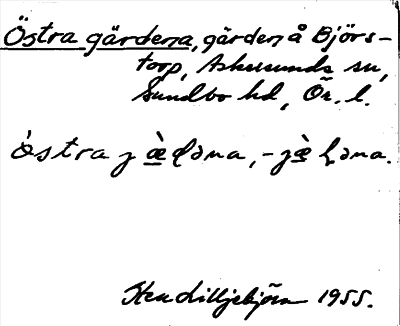 Östra gärdena, gärden å Björs-
torp, Askersunds sn,
Sundbo hd, Ör. l.
östra jæ̀dəna, -jæ̀ḷəna.
Sten Lilljebjörn 1955.